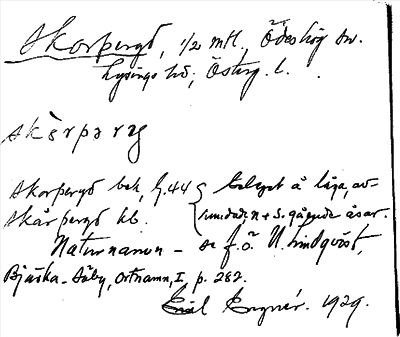 Skorpergd, 1/2 mtl., Ödeshög sn.
Lysings hd; Österg. l.
skɛ̀rpərg
Skorpergd bek, G.44 { beläget å låga, av-
Skårpergd kb. { rundade, n + S. gående åsar.
Naturnamn – se f.ö. N. Lindqvist,
Bjärka-Säby, Ortnamn, I, p. 282.
Emil Engnér. 1929.